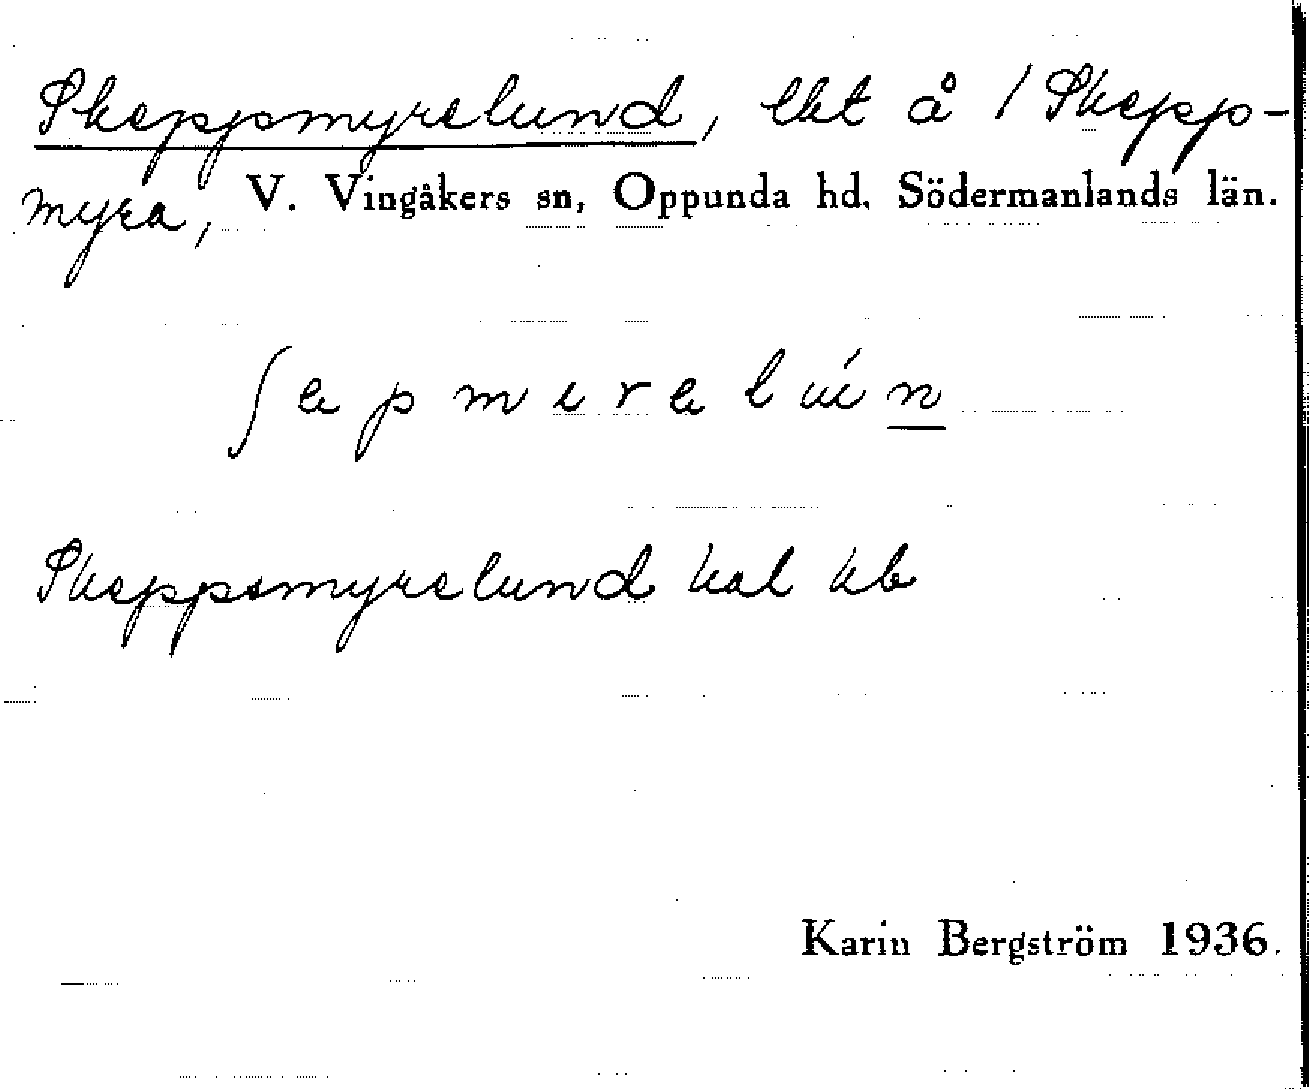 Skeppsmyrelund, lht å 1 Skepp-
myra, V. Vingåkers sn, Oppunda hd, Södermanlands län.
ʃ e p m i r e l ú n
Skeppsmyrelund kal kb
Karin Bergström 1936.